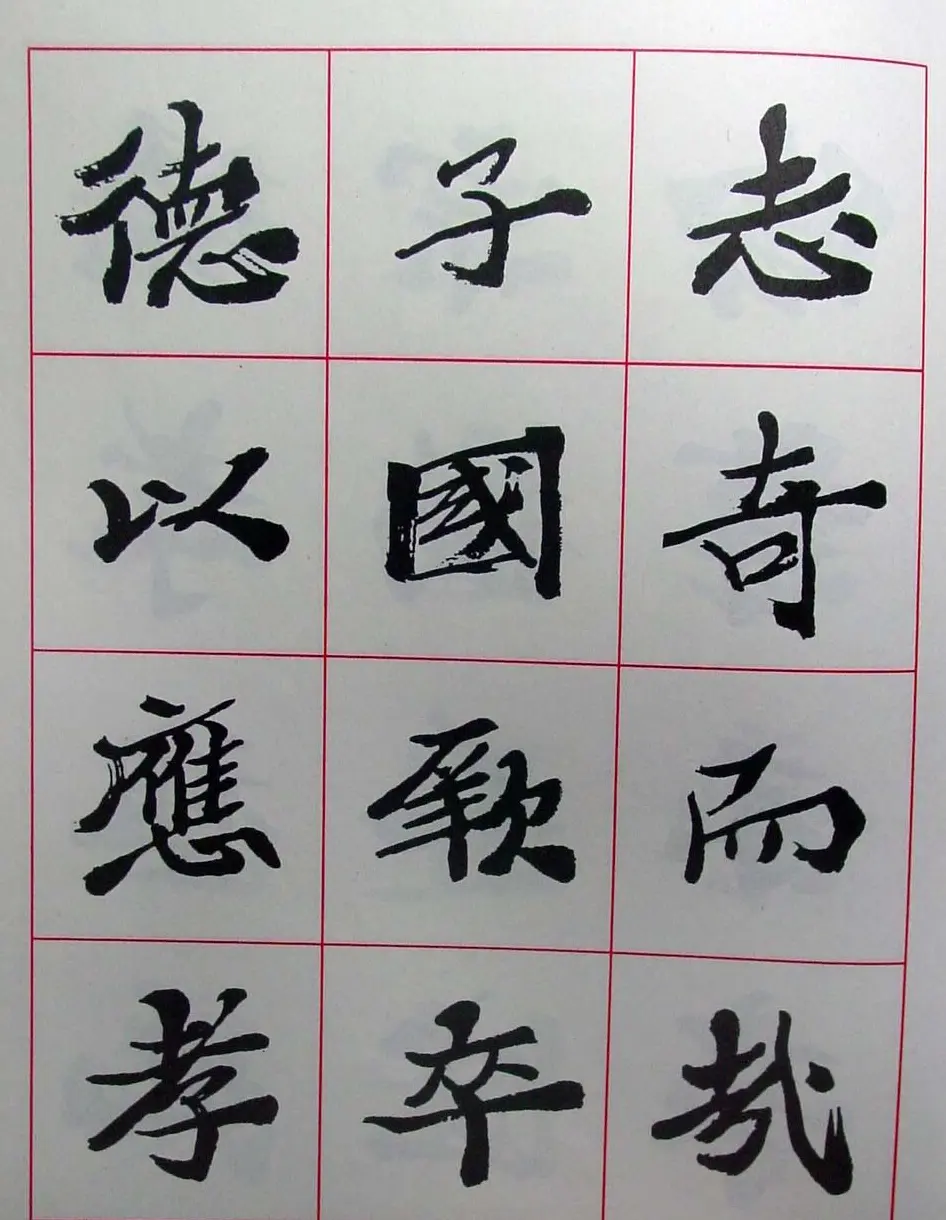 志奇而哉
子國厥卒
德以應孝